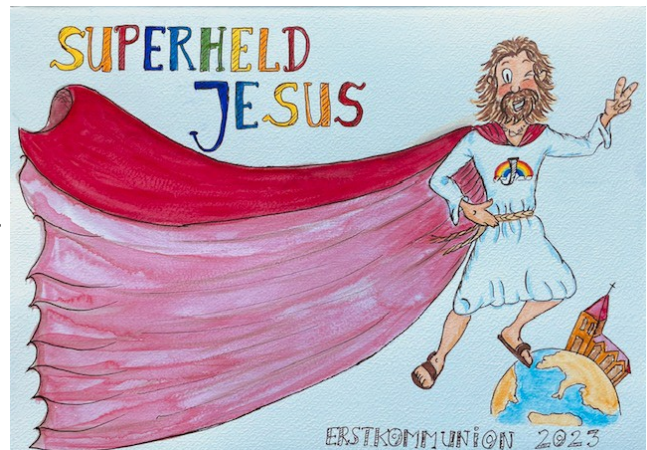 SUPERHELD
JESUS
J
ERSTKOMMUNION 2023